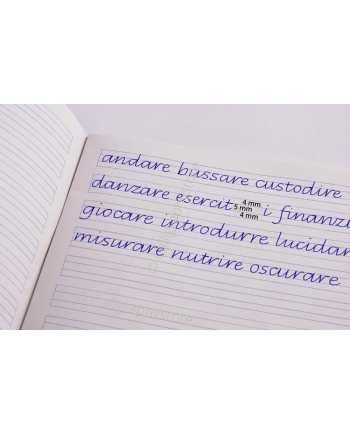 andare bussare custodire
danzare esercit i
4 mm
5 mm
4 mm
giocare introdurre
misurare nutrire oscurare